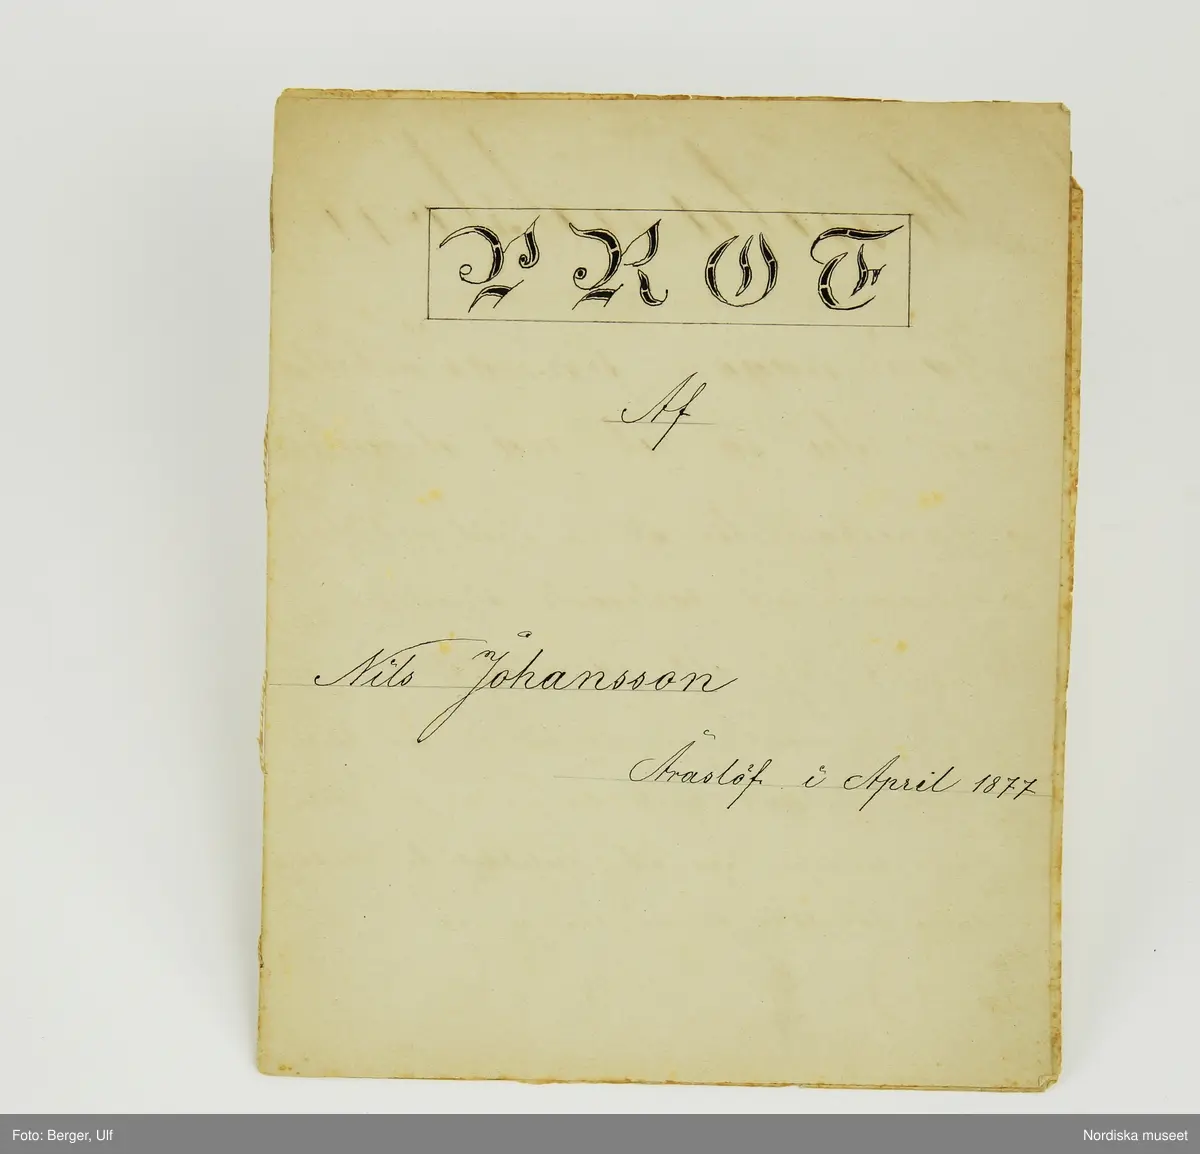 PROF
Af
Nils Johansson
Åraslöf i April 1877
Foto: Berger, Ulf
Nordiska museet